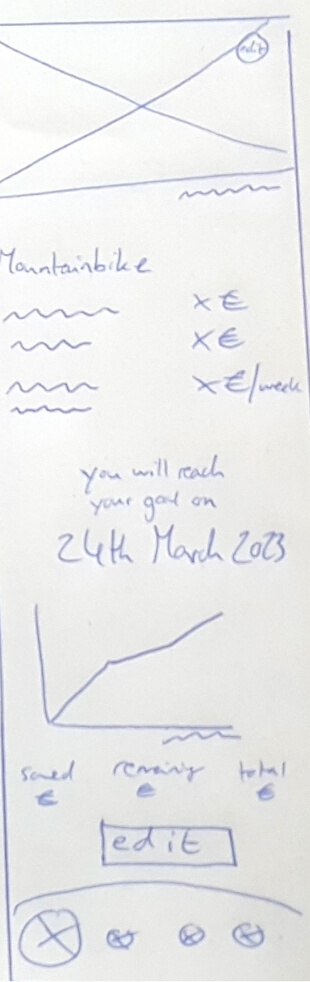 edit
Mountainbike
x €
x €
x €/week
you will reach
your goal on
24th March 2023
saved remaining total
€ € €
edit